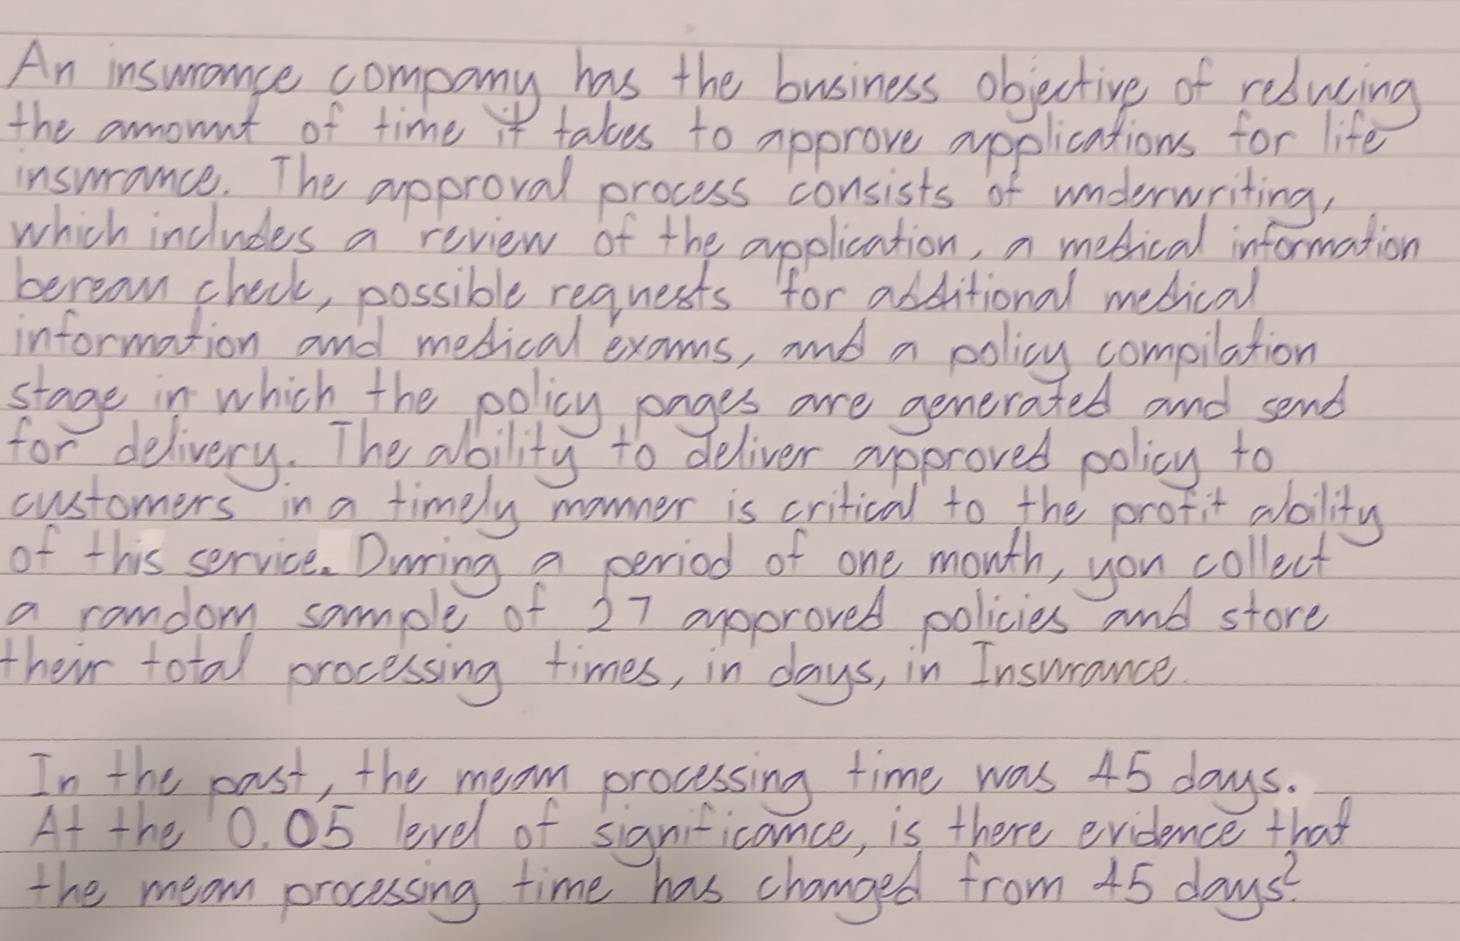 An insurance company has the business objective of reducing
the amount of time it takes to approve applications for life
insurance. The approval process consists of underwriting,
which includes a review of the application, a medical information
bereau check, possible requests for additional medical
information and medical exams, and a policy compilation
stage in which the policy pages are generated and send
for delivery. The ability to deliver approved policy to
customers in a timely manner is critical to the profit ability
of this service. During a period of one month, you collect
a random sample of 27 approved policies and store
their total processing times, in days, in Insurance.
In the past, the mean processing time was 45 days.
At the 0.05 level of significance, is there evidence that
the mean processing time has changed from 45 days?